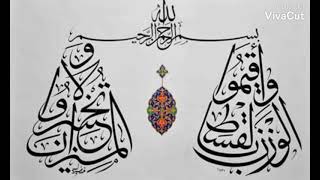 VivaCut
بسم الله الرحمن الرحيم
واقيموا
الوزن بالقسط
ولا
تخسروا
الميزان